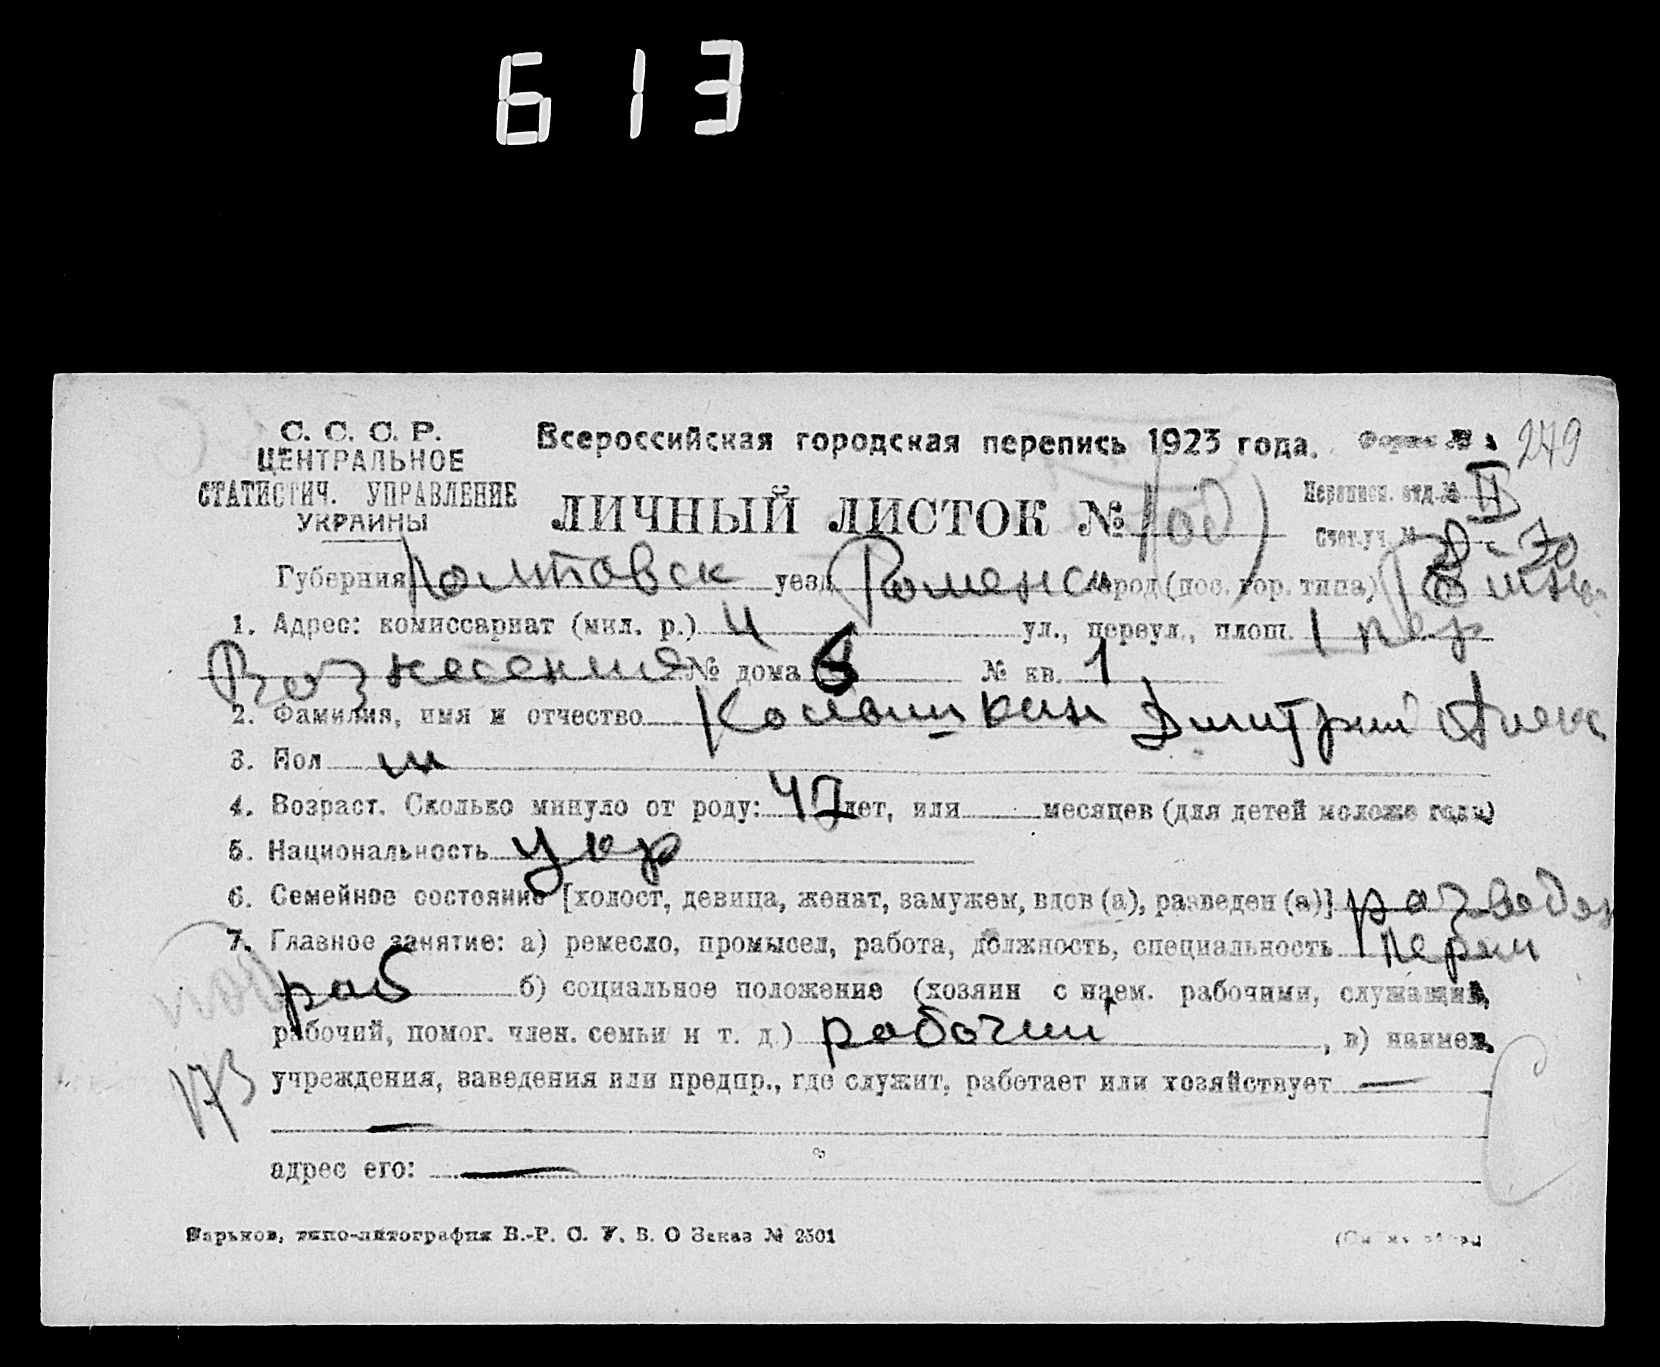 613
С. С. С. Р.
ЦЕНТРАЛЬНОЕ
СТАТИСТИЧ. УПРАВЛЕНИЕ
УКРАИНЫ
Всероссийская городская перепись 1923 года.
Форма №
249
ЛИЧНЫЙ ЛИСТОК №
Переписн. отд. № II
Счет. уч. №
Губерния Полтавск уезд Роменск город (пос. гор. типа)
1. Адрес: комиссариат (мил. р.) 4 ул., переул., площ. 1 пер
Вознесения № дома 6 № кв. 1
2. Фамилия, имя и отчество Дмитрий Алекс
3. Пол м
4. Возраст. Сколько минуло от роду: 47 лет, или месяцев (для детей моложе года)
5. Национальность укр
6. Семейное состояние [холост, девица, женат, замужем, вдов (а), разведен (а)] разведен
7. Главное занятие: а) ремесло, промысел, работа, должность, специальность
раб б) социальное положение (хозяин с наем. рабочими, служащий,
рабочий, помог. член. семьи и т. д.) рабочий, в) наимен.
учреждения, заведения или предпр., где служит, работает или хозяйствует —
—
173
адрес его: —
Харьков, типо-литография В.-Р. С. У. В. О Заказ № 2501